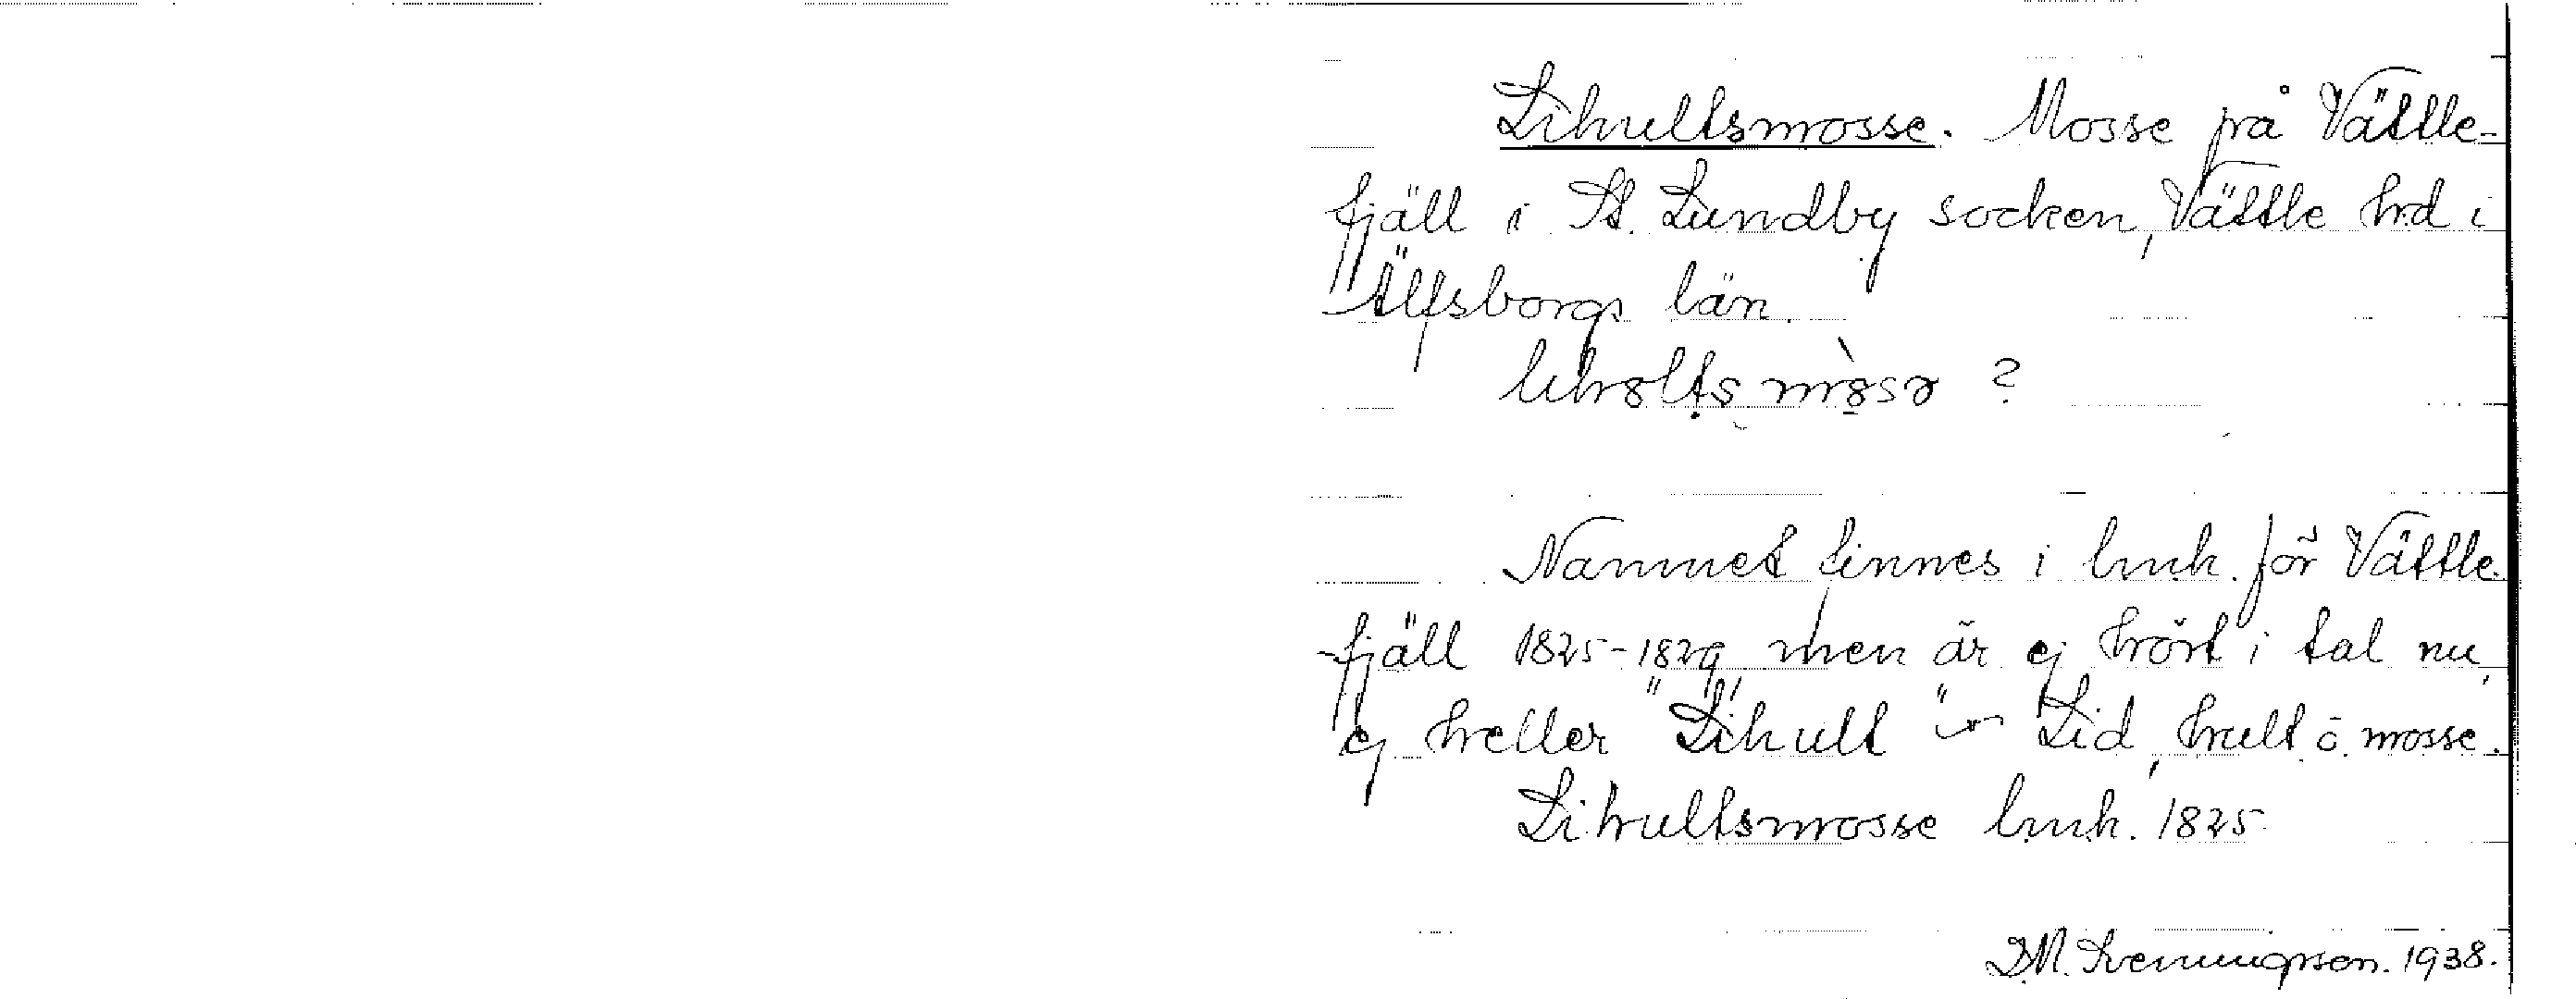 Lihultsmosse. Mosse på Vättle-
fjäll i St. Lundby socken, Vättle hd i
Älfsborgs län.
?
Namnet finnes i lmk. för Vättle-
fjäll 1825-1829, men är ej hört i tal nu,
ej heller "Lihult" Lid, hult o. mosse.
Lihultsmosse lmk. 1825.
D.M. Svenungsson. 1938.